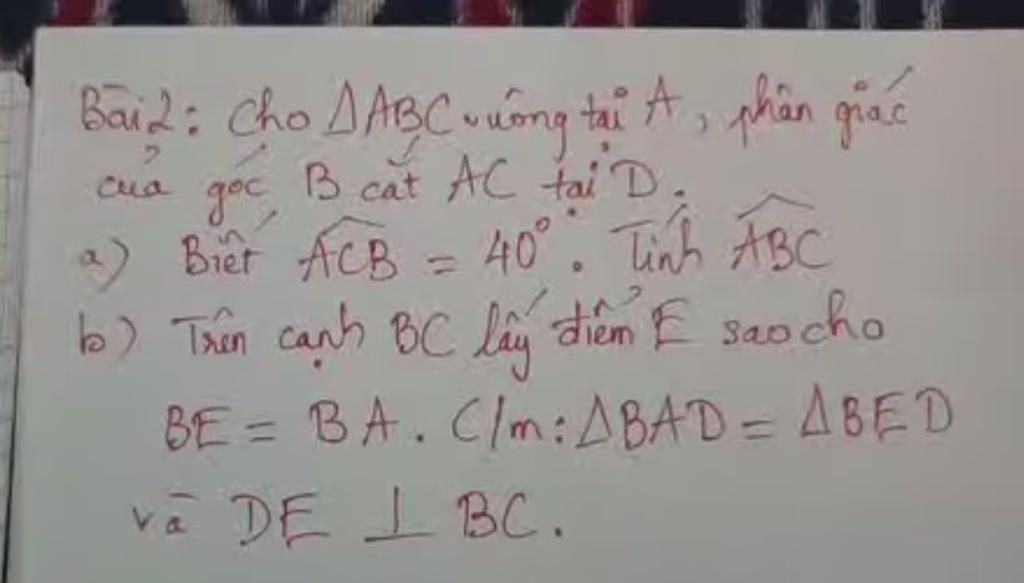 Bài 2: Cho ΔABC vuông tại A, phân giác
của góc B cắt AC tại D.
a) Biết \widehat{ACB} = 40°. Tính \widehat{ABC}
b) Trên cạnh BC lấy điểm E sao cho
BE = BA. C/m: ΔBAD = ΔBED
và DE ⊥ BC.